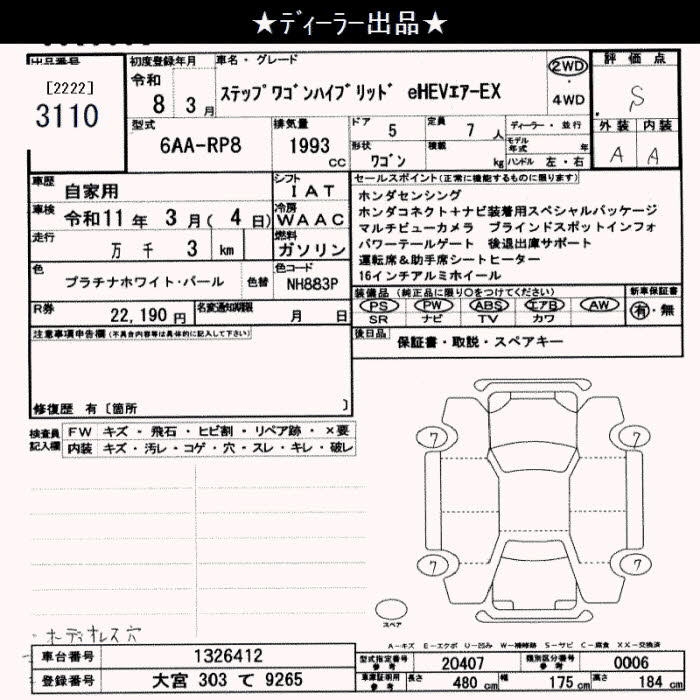 ★ディーラー出品★
出品番号
[2222]
3110
初度登録年月
令和
8 3月
車名・グレード
ステップワゴンハイブリッド eHEVエアーEX
2WD
・
4WD
評価点
S
外装 内装
A A
型式
6AA-RP8
排気量
1993
cc
ドア 5
定員 7 人
ディーラー・並行
形状
ワゴン
積載
kg
モデル
年式 年
ハンドル 左・右
車歴 自家用
シフト
IAT
車検 令和11年 3月( 4日)
冷房
WAAC
走行
万 千 3 km
燃料
ガソリン
色
プラチナホワイト・パール
色替
色コード
NH883P
R券
22,190円
名変通知期限
月 日
セールスポイント(正常に機能するものに限ります)
ホンダセンシング
ホンダコネクト+ナビ装着用スペシャルパッケージ
マルチビューカメラ ブラインドスポットインフォ
パワーテールゲート 後退出庫サポート
運転席&助手席シートヒーター
16インチアルミホイール
装備品(純正品に限り○をつけてください) 新車保証書
PS PW ABS エアB AW
SR ナビ TV カワ
有・無
後日品
保証書・取説・スペアキー
注意事項申告欄(不具合内容等は具体的に記入して下さい)
修復歴 有〔箇所 〕
検査員
記入欄
FW キズ・飛石・ヒビ割・リペア跡・×要
内装 キズ・汚レ・コゲ・穴・スレ・キレ・破レ
7 7
7 7
スペア
ボディオレス穴
A-キズ E-エクボ U-凹み W-補修跡 S-サビ C-腐食 XX-交換済
車台番号 1326412
登録番号 大宮 303 て 9265
型式指定番号
参考
20407
類別区分番号
参考
0006
車庫証明用
参考
長さ 480cm 幅 175cm 高さ 184cm